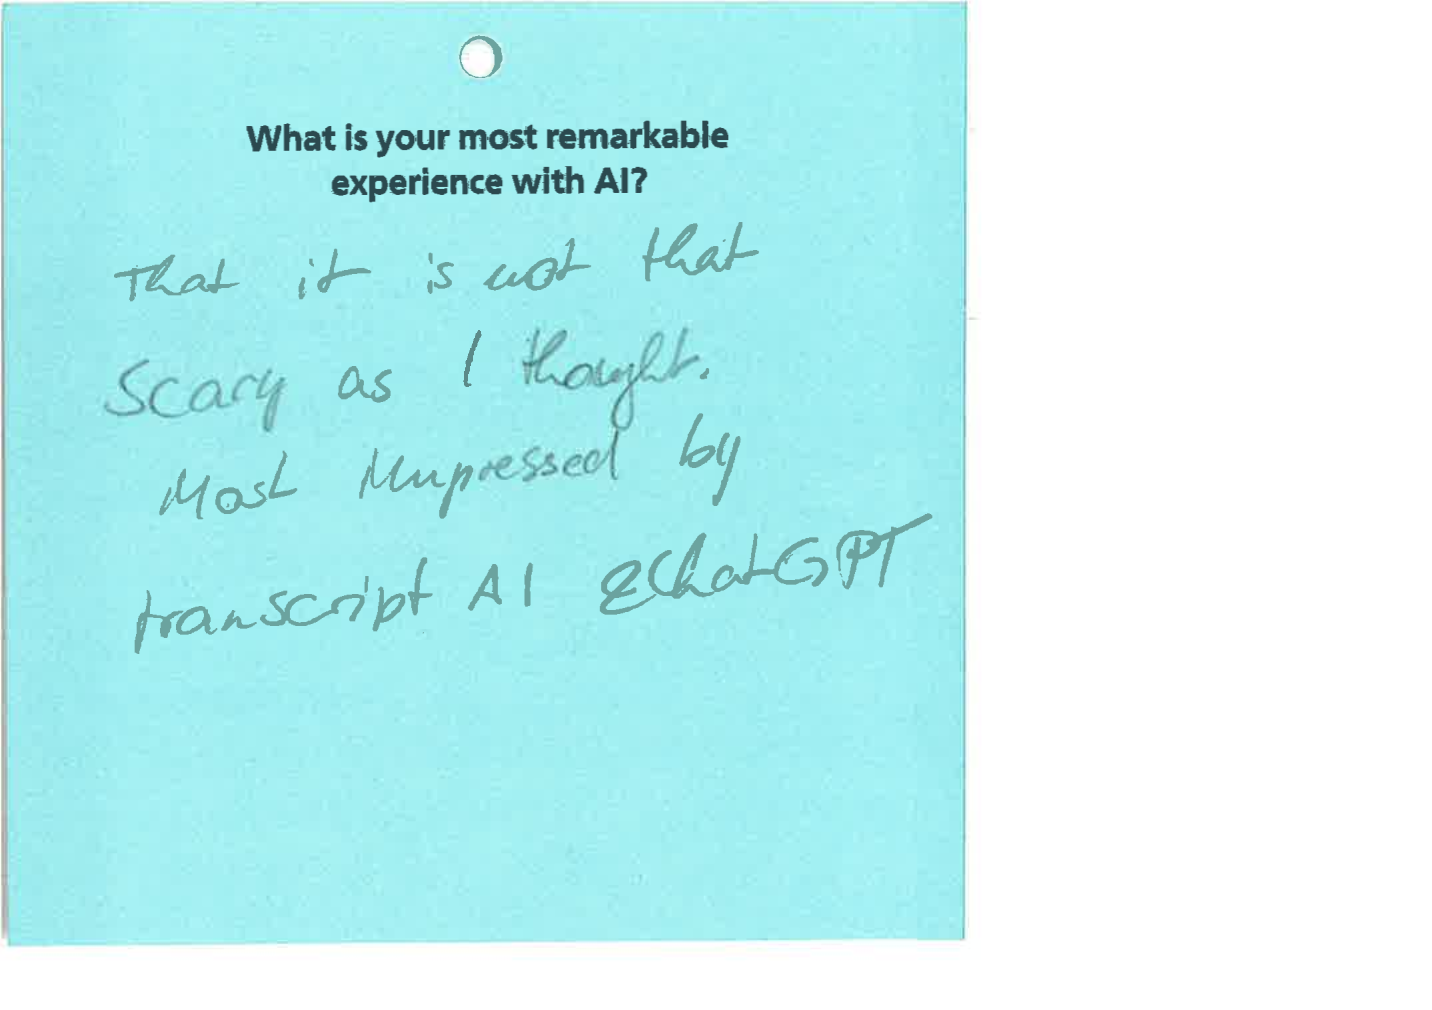 What is your most remarkable
experience with AI?
That it is not that
scary as I thought.
Most impressed by
transcript AI & ChatGPT